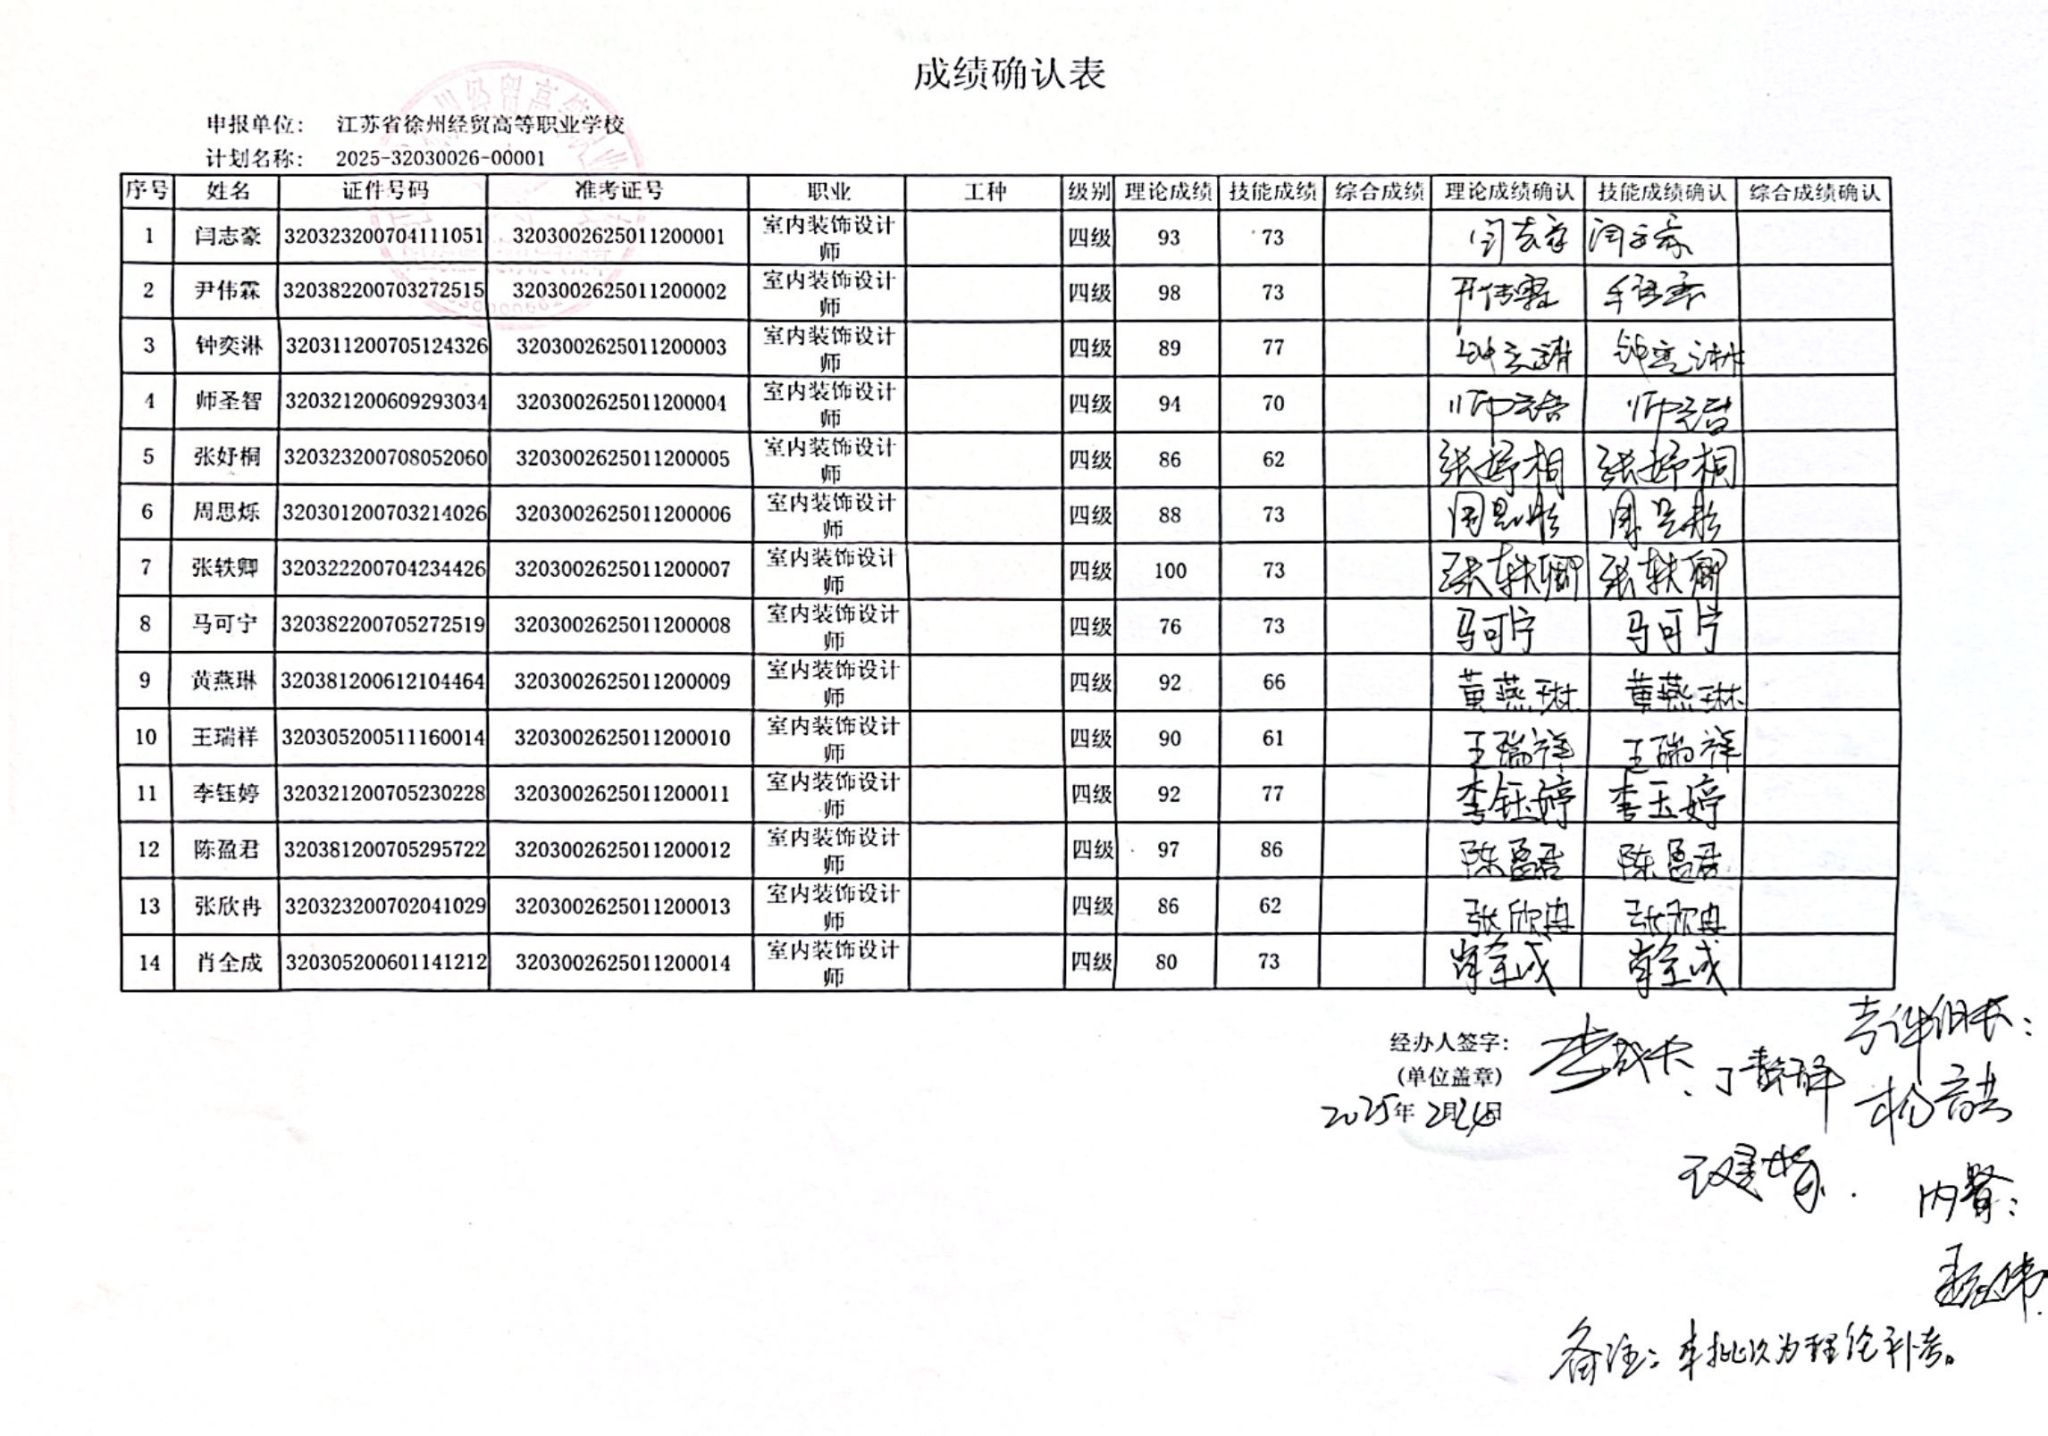 成绩确认表
申报单位： 江苏省徐州经贸高等职业学校
计划名称： 2025-32030026-00001
序号 姓名 证件号码 准考证号 职业 工种 级别 理论成绩 技能成绩 综合成绩 理论成绩确认 技能成绩确认 综合成绩确认
1 闫志豪 320323200704111051 3203002625011200001 室内装饰设计师 四级 93 73 闫志豪 闫志豪
2 尹伟霖 320382200703272515 3203002625011200002 室内装饰设计师 四级 98 73 尹伟霖 尹伟霖
3 钟奕淋 320311200705124326 3203002625011200003 室内装饰设计师 四级 89 77 钟奕淋 钟奕淋
4 师圣智 320321200609293034 3203002625011200004 室内装饰设计师 四级 94 70 师圣智 师圣智
5 张妤桐 320323200708052060 3203002625011200005 室内装饰设计师 四级 86 62 张妤桐 张妤桐
6 周思烁 320301200703214026 3203002625011200006 室内装饰设计师 四级 88 73 周思烁 周思烁
7 张轶卿 320322200704234426 3203002625011200007 室内装饰设计师 四级 100 73 张轶卿 张轶卿
8 马可宁 320382200705272519 3203002625011200008 室内装饰设计师 四级 76 73 马可宁 马可宁
9 黄燕琳 320381200612104464 3203002625011200009 室内装饰设计师 四级 92 66 黄燕琳 黄燕琳
10 王瑞祥 320305200511160014 3203002625011200010 室内装饰设计师 四级 90 61 王瑞祥 王瑞祥
11 李钰婷 320321200705230228 3203002625011200011 室内装饰设计师 四级 92 77 李钰婷 李玉婷
12 陈盈君 320381200705295722 3203002625011200012 室内装饰设计师 四级 97 86 陈盈君 陈盈君
13 张欣冉 320323200702041029 3203002625011200013 室内装饰设计师 四级 86 62 张欣冉 张欣冉
14 肖全成 320305200601141212 3203002625011200014 室内装饰设计师 四级 80 73 肖全成 肖全成
经办人签字：
(单位盖章)
2025年2月24日
考评组长：
内督：
备注：本批次为理论补考。